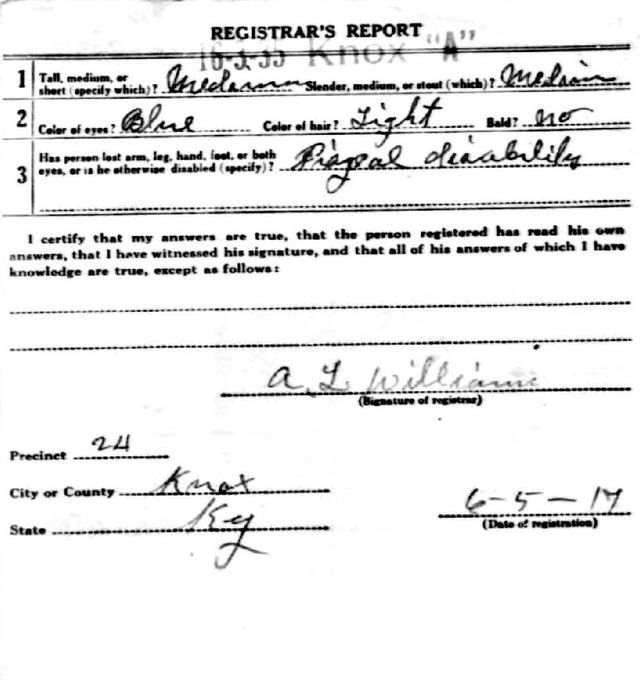 REGISTRAR'S REPORT
16-3-35 Knox "A"
1 Tall, medium, or short (specify which)? Medium Slender, medium, or stout (which)? Medium
2 Color of eyes? Blue Color of hair? Light Bald? no
3 Has person lost arm, leg, hand, foot, or both
eyes, or is he otherwise disabled (specify)? disability
I certify that my answers are true, that the person registered has read his own
answers, that I have witnessed his signature, and that all of his answers of which I have
knowledge are true, except as follows:
A. L Williams
(Signature of registrar)
Precinct 24
City or County Knox
State Ky
6-5-17
(Date of registration)